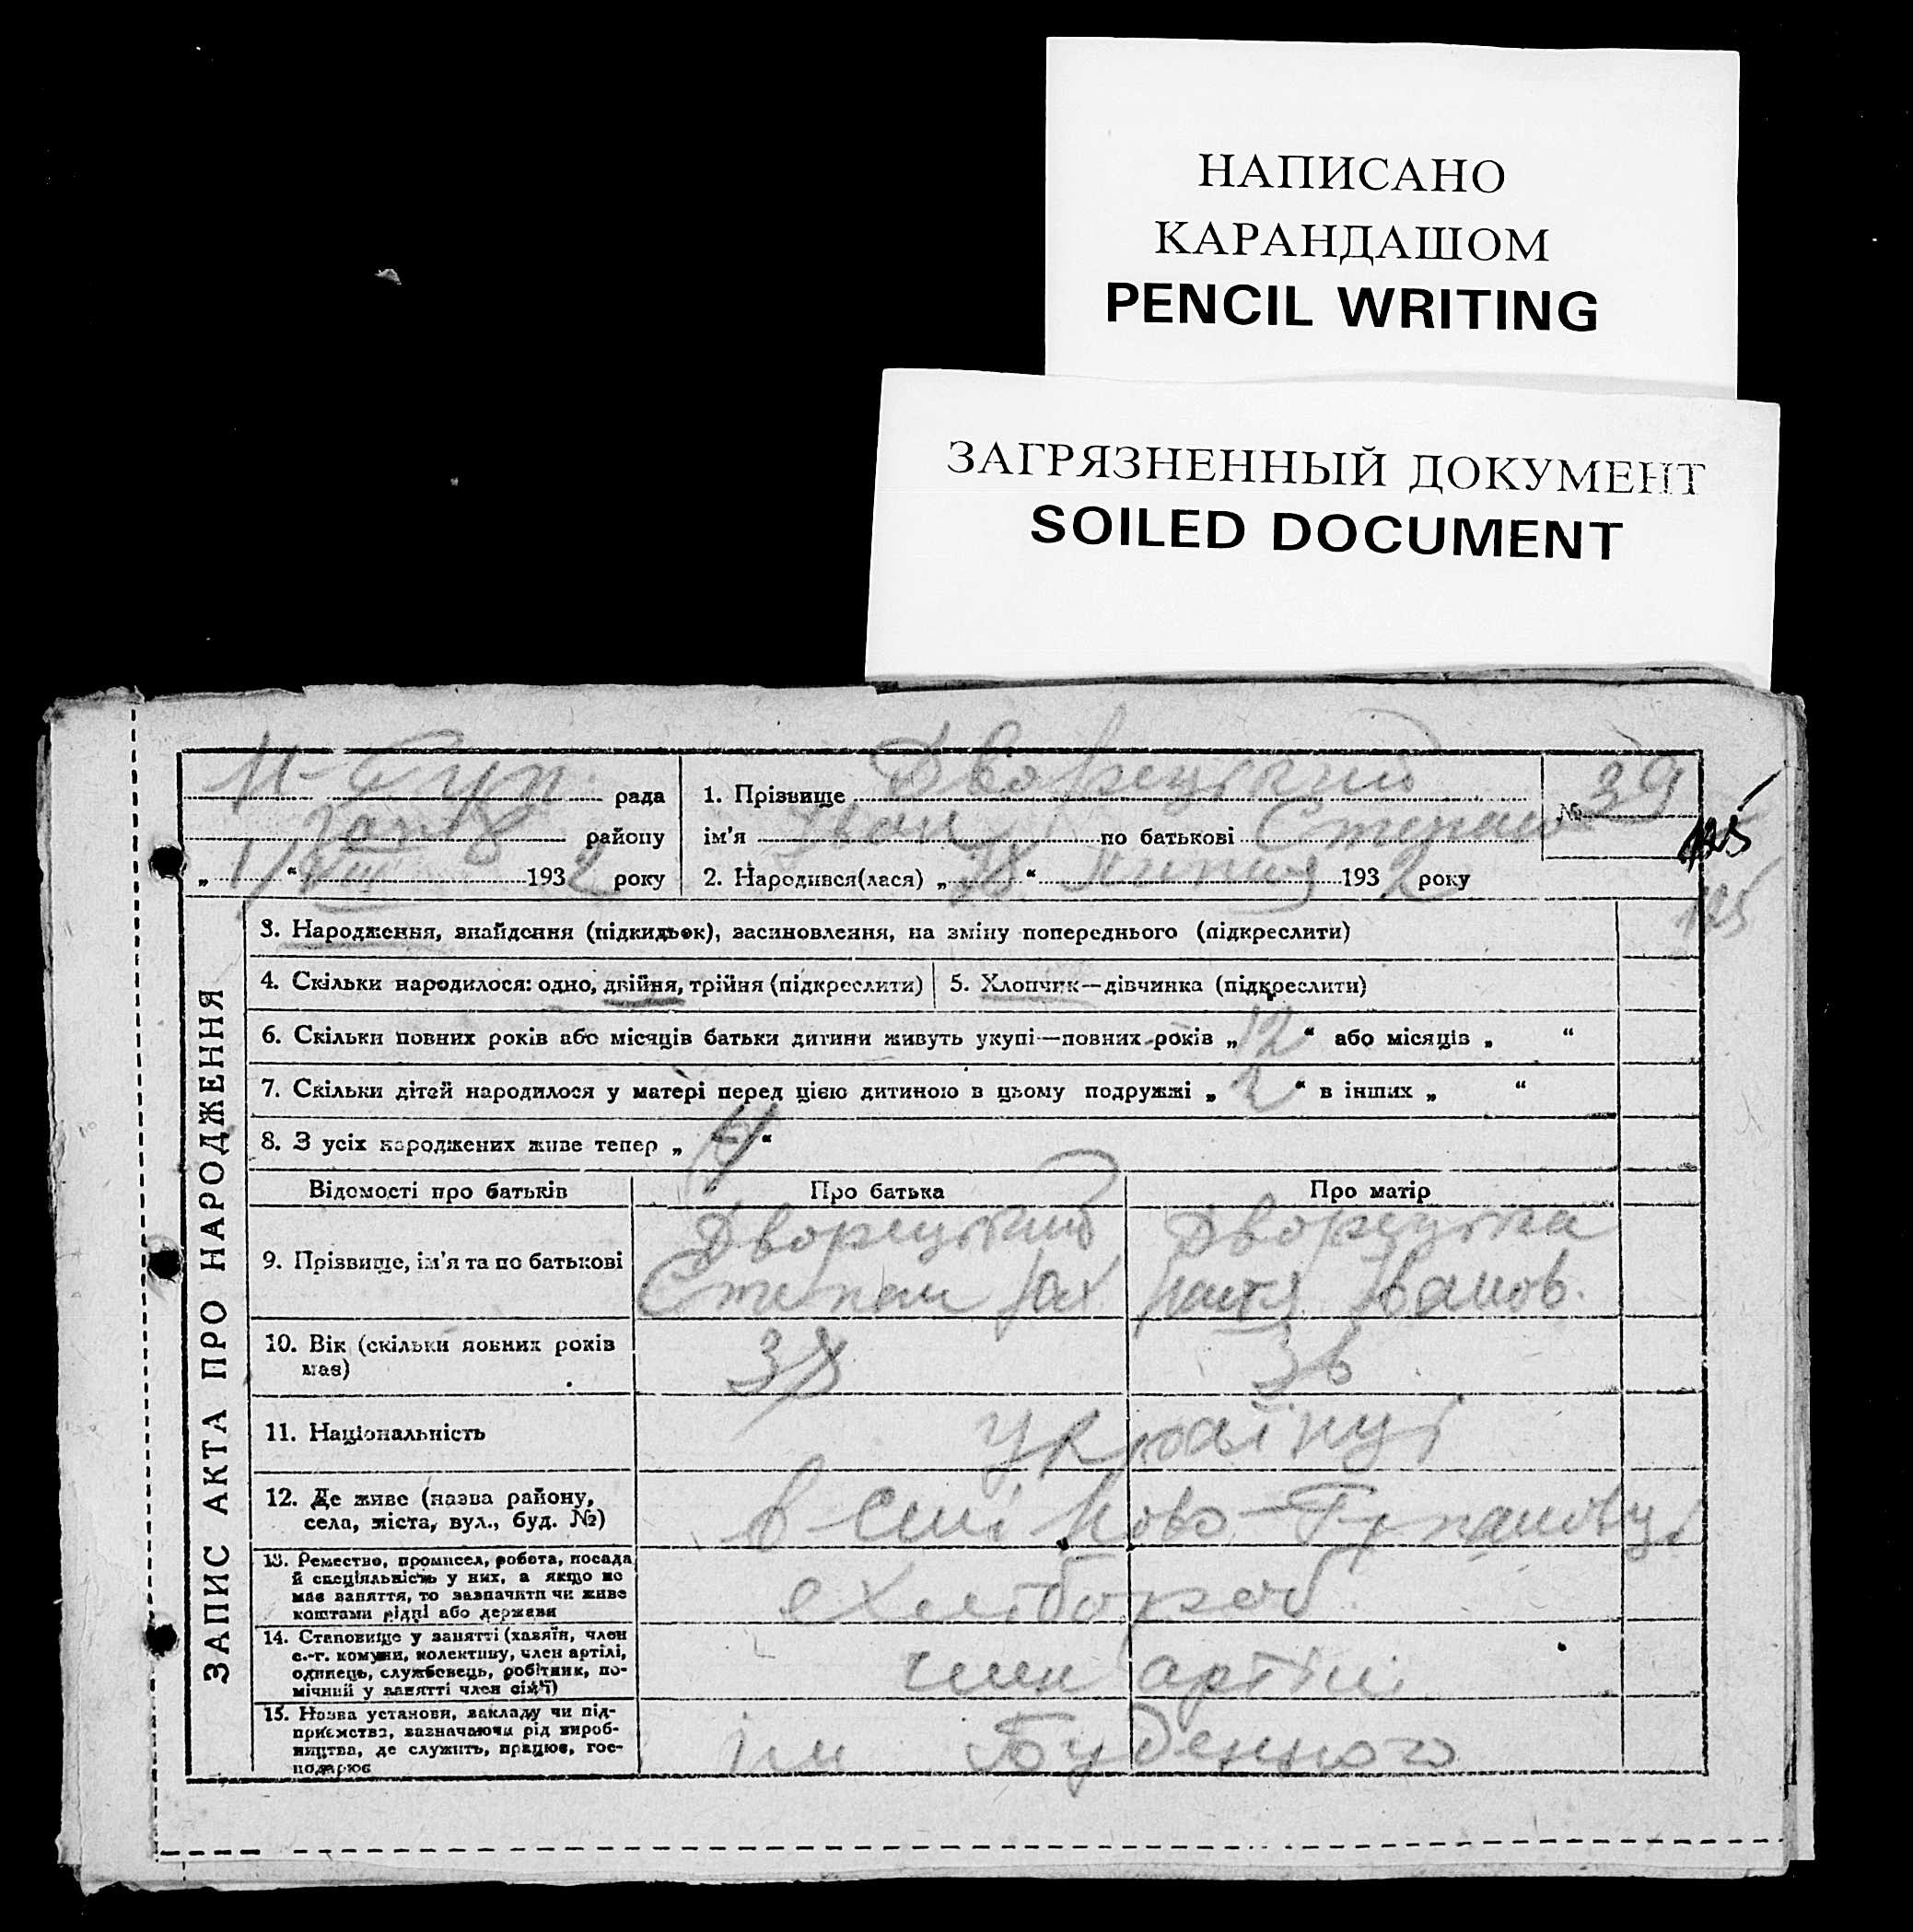 НАПИСАНО
КАРАНДАШОМ
PENCIL WRITING
ЗАГРЯЗНЕННЫЙ ДОКУМЕНТ
SOILED DOCUMENT
рада
району
„ 1 “ VIII 1932 року
1. Прізвище Дворецький
ім'я Іван по батькові Степан
2. Народився(лася) „ “ липня 1932 року
№ 39
125
125
ЗАПИС АКТА ПРО НАРОДЖЕННЯ
3. Народження, знайдення (підкидьок), васиновлення, на зміну попереднього (підкреслити)
4. Скільки народилося: одно, двійня, трійня (підкреслити)
5. Хлопчик—дівчинка (підкреслити)
6. Скільки повних років або місяців батьки дитини живуть укупі—повних років „ 12 “ або місяців „ “
7. Скільки дітей народилося у матері перед цією дитиною в цьому подружжі „ 2 “ в інших „ “
8. З усіх народжених живе тепер „ 4 “
Відомості про батьків Про батька Про матір
9. Прізвище, ім'я та по батькові
Дворецький
Степан
Дворецька
Настя Іванов.
10. Вік (скільки повних років
має)
38
36
11. Національність
українці
12. Де живе (назва району,
села, міста, вул., буд. №)
в селі Ново-
13. Ремество, промисел, робота, посада
й спеціяльність у них, а якщо не
має заняття, то зазначити чи живе
коштами рідні або держави
хлібороб
14. Становище у занятті (хазяїн, член
с.-г. комуни, колективу, член артілі,
одинець, службовець, робітник, по-
мічний у занятті член сім'ї)
член артілі
15. Назва установи, закладу чи під-
приємства, зазначаючи рід вироб-
ництва, де служить, працює, гос-
подарює
ім Буденного